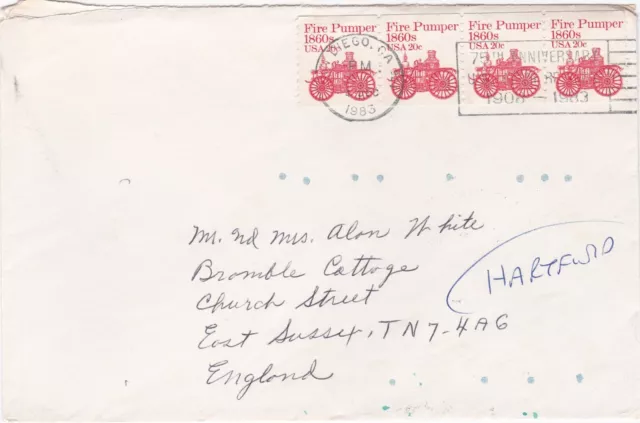 Fire Pumper Fire Pumper Fire Pumper Fire Pumper
1860s 1860s 1860s 1860s
USA 20c USA 20c USA 20c USA 20c
DIEGO, CA
PM
1983
75TH ANNIVERSARY
1908-1983
Mr. nd Mrs. Alan White
Bramble Cottage
Church Street
East Sussex, TN7-4AG
England
HARTFIELD